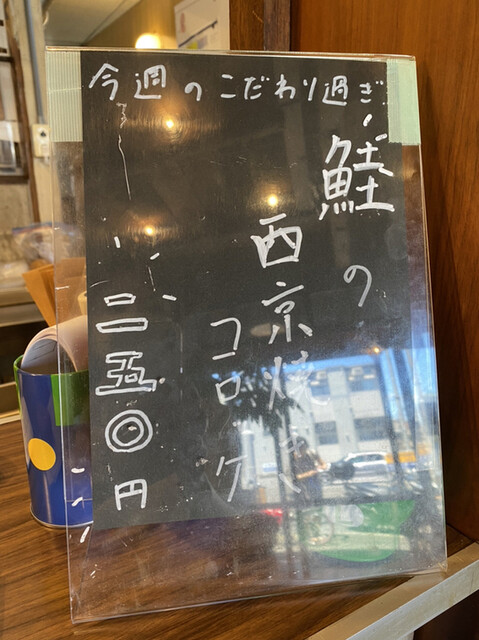 今週のこだわり過ぎ
鮭の
西京焼き
コロッケ
二五〇円